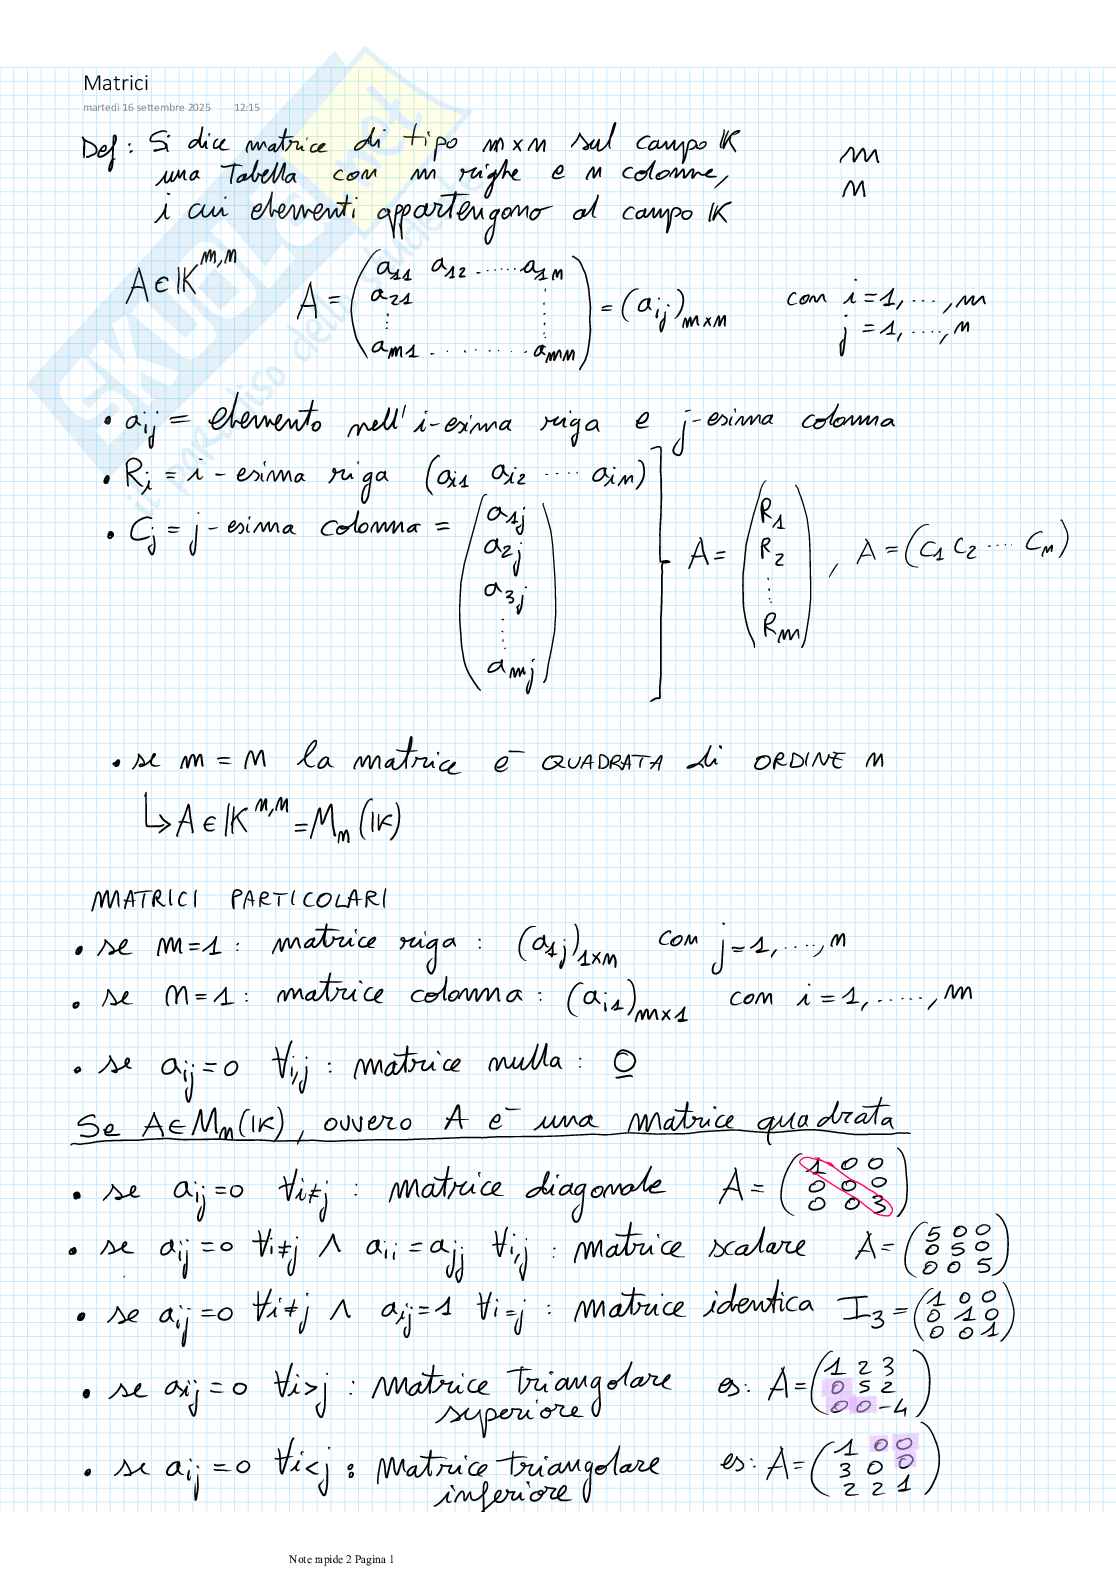 Matrici
martedì 16 settembre 2025 12:15
Def: Si dice matrice di tipo m×n sul campo K
una Tabella con m righe e n colonne,
i cui elementi appartengono al campo K
m
n
A∈K^{m,n} A = (a_{11} a_{12} ...... a_{1n} / a_{21} ⋮ / ⋮ ⋮ / a_{m1} ........ a_{mn}) = (a_{ij})_{m×n} con i=1,...,m
j=1,....,n
• a_{ij} = elemento nell'i-esima riga e j-esima colonna
• R_i = i-esima riga (a_{i1} a_{i2} .... a_{in})
• C_j = j-esima colonna = (a_{1j} / a_{2j} / a_{3j} / ⋮ / a_{mj}) ] A = (R_1 / R_2 / ⋮ / R_m), A = (C_1 C_2 .... C_n)
• se m = n la matrice è QUADRATA di ORDINE n
↳ A∈K^{n,n} = M_n(K)
MATRICI PARTICOLARI
• se m=1: matrice riga: (a_{1j})_{1×n} con j=1,....,n
• se n=1: matrice colonna: (a_{i1})_{m×1} con i=1,.....,m
• se a_{ij}=0 ∀i,j: matrice nulla: 0
Se A∈M_n(K), ovvero A è una matrice quadrata
• se a_{ij}=0 ∀i≠j: matrice diagonale A = (1 0 0 / 0 0 0 / 0 0 3)
• se a_{ij}=0 ∀i≠j ∧ a_{ii}=a_{jj} ∀i,j: matrice scalare A = (5 0 0 / 0 5 0 / 0 0 5)
• se a_{ij}=0 ∀i≠j ∧ a_{ij}=1 ∀i=j: matrice identica I_3 = (1 0 0 / 0 1 0 / 0 0 1)
• se a_{ij}=0 ∀i>j: matrice triangolare es: A = (1 2 3 / 0 5 2 / 0 0 -4)
superiore
• se a_{ij}=0 ∀i<j: Matrice triangolare es: A = (1 0 0 / 3 0 0 / 2 2 1)
inferiore
Note rapide 2 Pagina 1